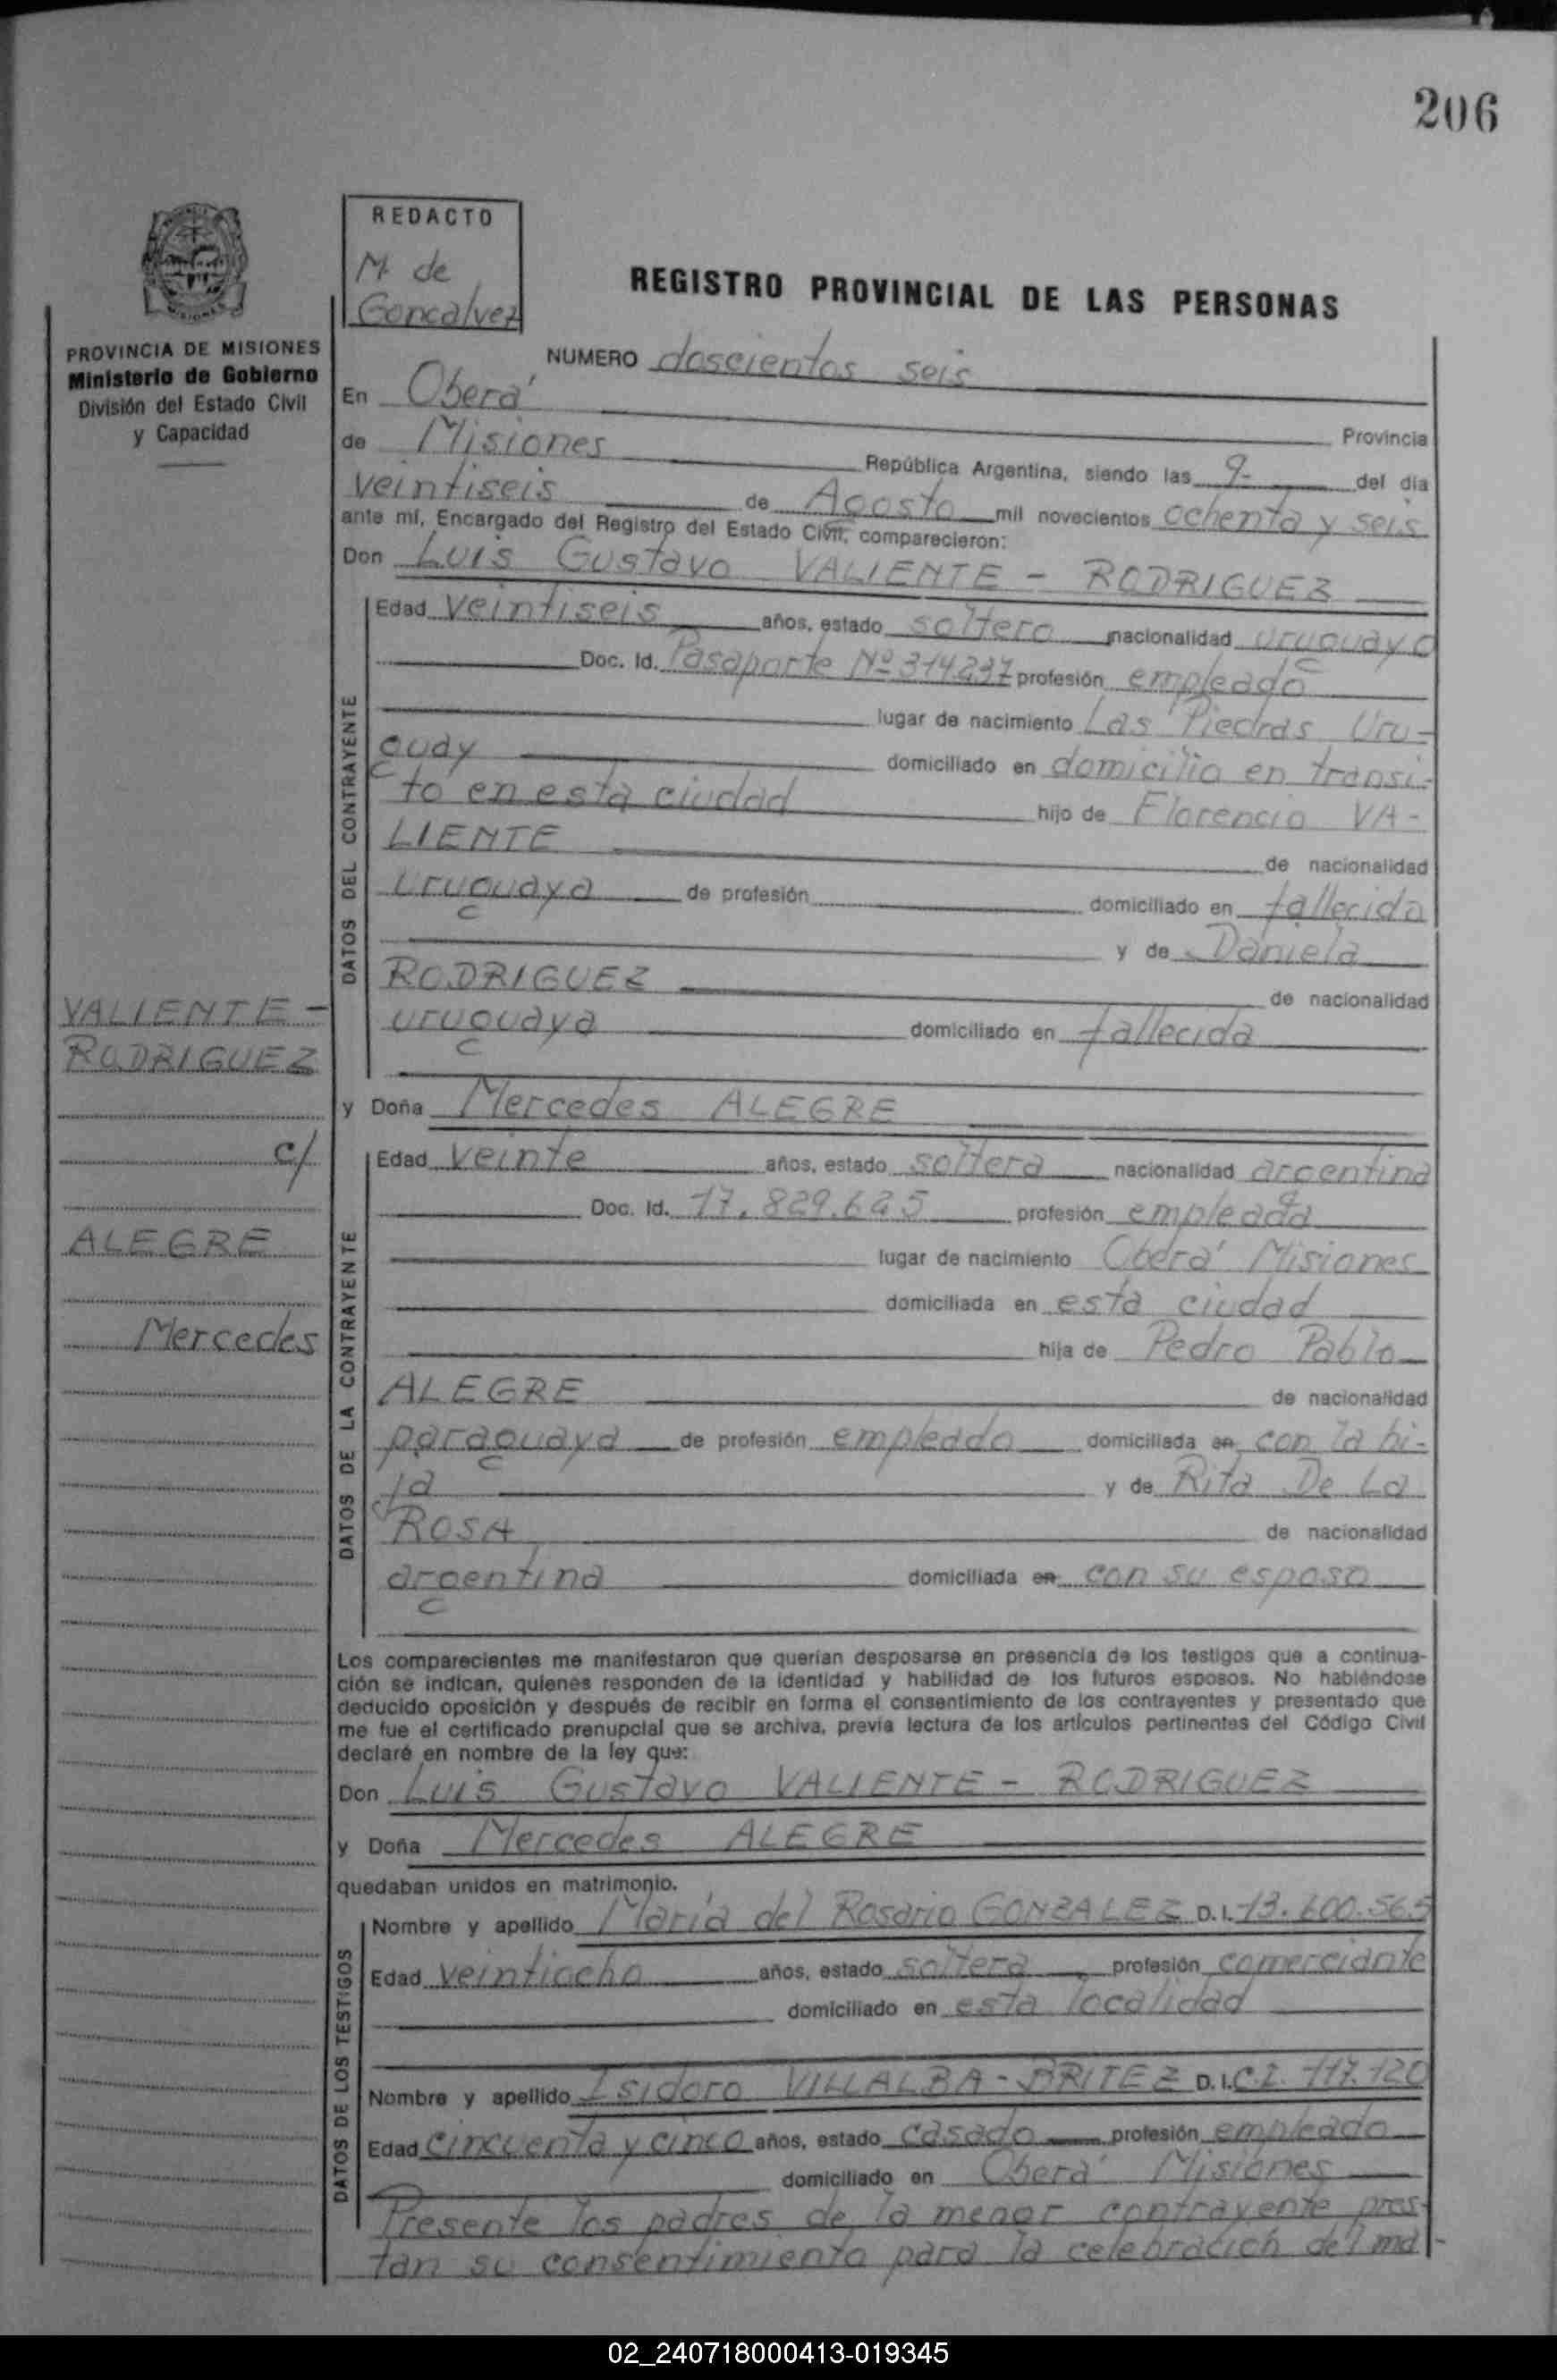 206
REDACTO
M. de
Goncalvez
REGISTRO PROVINCIAL DE LAS PERSONAS
PROVINCIA DE MISIONES
Ministerio de Gobierno
División del Estado Civil
y Capacidad
NUMERO doscientos seis
En Oberá Provincia
de Misiones República Argentina, siendo las 9- del día
veintiseis de Agosto mil novecientos ochenta y seis
ante mí, Encargado del Registro del Estado Civil, comparecieron:
Don Luis Gustavo VALIENTE - RODRIGUEZ
DATOS DEL CONTRAYENTE
Edad veintiseis años, estado soltero nacionalidad uruguayo
Doc. Id. Pasaporte Nº 314237 profesión empleado
lugar de nacimiento Las Piedras Uru-
guay domiciliado en domicilio en transi-
to en esta ciudad hijo de Florencio VA-
LIENTE de nacionalidad
uruguaya de profesión domiciliado en fallecido
y de Daniela
RODRIGUEZ de nacionalidad
uruguaya domiciliado en fallecida
VALIENTE -
RODRIGUEZ
c/
ALEGRE
Mercedes
y Doña Mercedes ALEGRE
DATOS DE LA CONTRAYENTE
Edad veinte años, estado soltera nacionalidad argentina
Doc. Id. 17.829.625 profesión empleada
lugar de nacimiento Oberá Misiones
domiciliada en esta ciudad
hija de Pedro Pablo
ALEGRE de nacionalidad
paraguaya de profesión empleado domiciliada en con la hi-
ja y de Rita De La
ROSA de nacionalidad
argentina domiciliada en con su esposo
Los comparecientes me manifestaron que querían desposarse en presencia de los testigos que a continua-
ción se indican, quienes responden de la identidad y habilidad de los futuros esposos. No habiéndose
deducido oposición y después de recibir en forma el consentimiento de los contrayentes y presentado que
me fue el certificado prenupcial que se archiva, previa lectura de los artículos pertinentes del Código Civil
declaré en nombre de la ley que:
Don Luis Gustavo VALIENTE - RODRIGUEZ
y Doña Mercedes ALEGRE
quedaban unidos en matrimonio.
DATOS DE LOS TESTIGOS
Nombre y apellido María del Rosario GONZALEZ D.I. 13.600.565
Edad veintiocho años, estado soltera profesión comerciante
domiciliado en esta localidad
Nombre y apellido Isidoro VILLALBA - BRITEZ D.I. C.I. 117.120
Edad cincuenta y cinco años, estado casado profesión empleado
domiciliado en Oberá Misiones
Presente los padres de la menor contrayente pres-
tan su consentimiento para la celebración del ma-
02_240718000413-019345